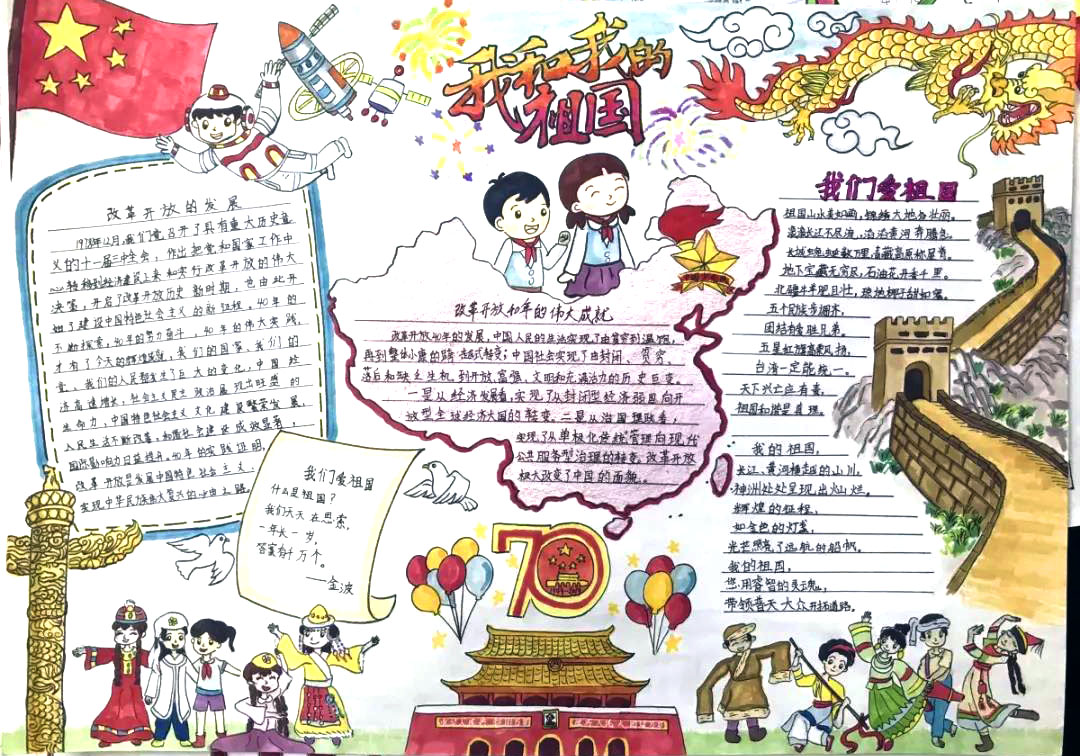 我和我的
祖国
改革开放的发展
1978年12月,我们党召开了具有重大历史意
义的十一届三中全会,作出把党和国家工作中
心转移到经济建设上来和实行改革开放的伟大
决策,开启了改革开放历史新时期,也由此开
始了建设中国特色社会主义的新征程。40年的
不断探索,40年的努力奋斗,40年的伟大实践
才有了今天的辉煌成就,我们的国家、我们的
党、我们的人民都发生了巨大的变化,中国经
济高速增长,社会主义民主政治展现出旺盛的
生命力,中国特色社会主义文化建设繁荣发展,
人民生活不断改善,和谐社会建设成效显著,
国际影响力日益提升。40年的实践证明,
改革开放是发展中国特色社会主义、
实现中华民族伟大复兴的必由之路。
我们爱祖国
什么是祖国?
我们天天在思索,
一年长一岁,
答案有十万个。
——金波
改革开放40年的伟大成就
改革开放40年的发展,中国人民的生活实现了由贫穷到温饱,
再到整体小康的跨越式转变;中国社会实现了由封闭、贫穷、
落后和缺乏生机,到开放、富强、文明和充满活力的历史巨变。
一是从经济发展看,实现了从封闭型经济弱国向开
放型全球经济大国的转变。二是从治国理政看,
实现了从单极化传统管理向现代
公共服务型治理的转变。改革开放
极大改变了中国的面貌。
70
1949-2019
我们爱祖国
祖国山水美如画,锦绣大地各壮丽。
滚滚长江不尽流,滔滔黄河奔腾急。
地下宝藏无穷尽,石油花开香千里。
五个民族多拥木,
团结有爱胜兄弟。
五星红旗高飘扬,
台湾一定能统一。
天下兴亡应有责,
祖国和谐是真理。
我的祖国,
长江、黄河横越的山川,
神州处处呈现出灿烂。
辉煌的征程,
如金色的灯盏,
光芒照亮了远航的船帆。
我的祖国,
您用睿智的灵魂,
带领普天大众开拓道路。